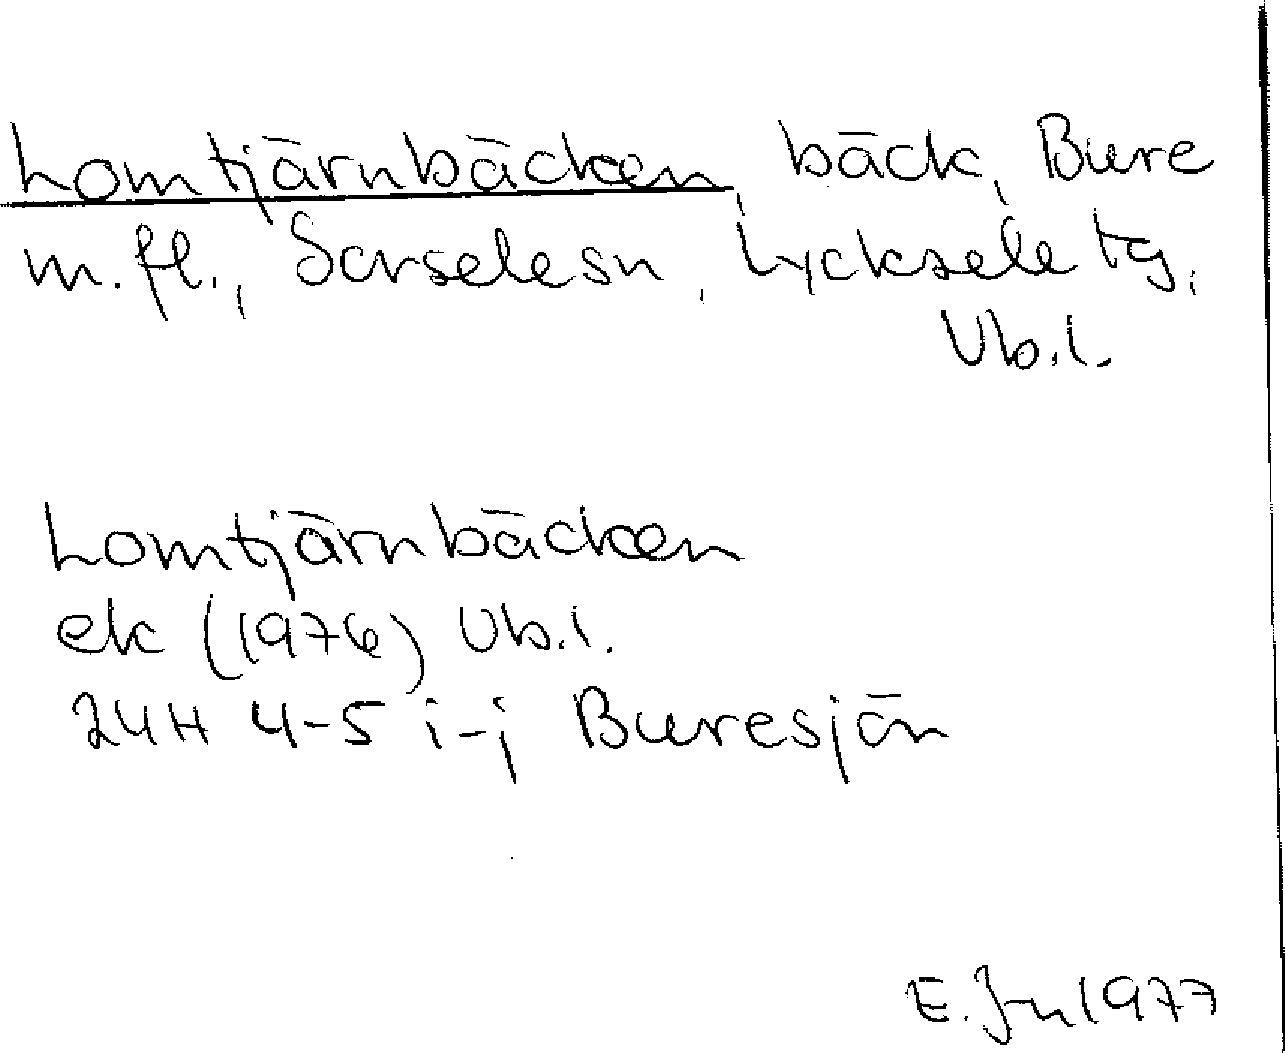 Lomtjärnbäcken, bäck, Bure
m.fl., Sorselesn, Lycksele tg,
Vb.l.
Lomtjärnbäcken
ek (1976) Vb.l.
24H 4-5 i-j Buresjön
E. 1977